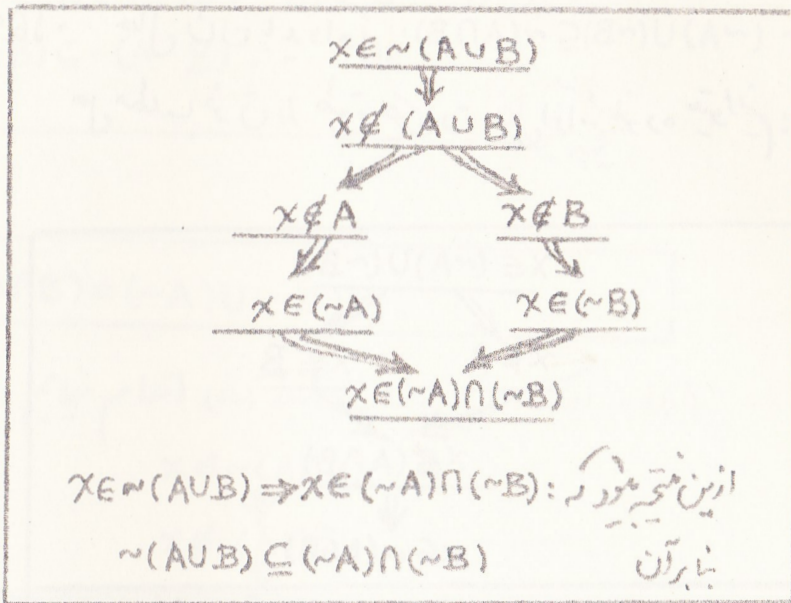 x∈~(A∪B)
x∉(A∪B)
x∉A x∉B
x∈(~A) x∈(~B)
x∈(~A)∩(~B)
ازین نتیجه میشود که : x∈~(A∪B)⇒x∈(~A)∩(~B)
بنابرآن ~(A∪B)⊆(~A)∩(~B)